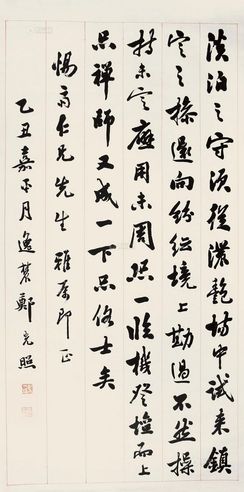 淡泊之守須從濃艷場中試來鎮
定之操還向紛紜境上勘過不然操
持未定應用未圓恐一臨機登壇而上
品禪師又成一下品俗士矣
惕齋仁兄先生雅屬即正
乙丑嘉平月逸葊鄭克照